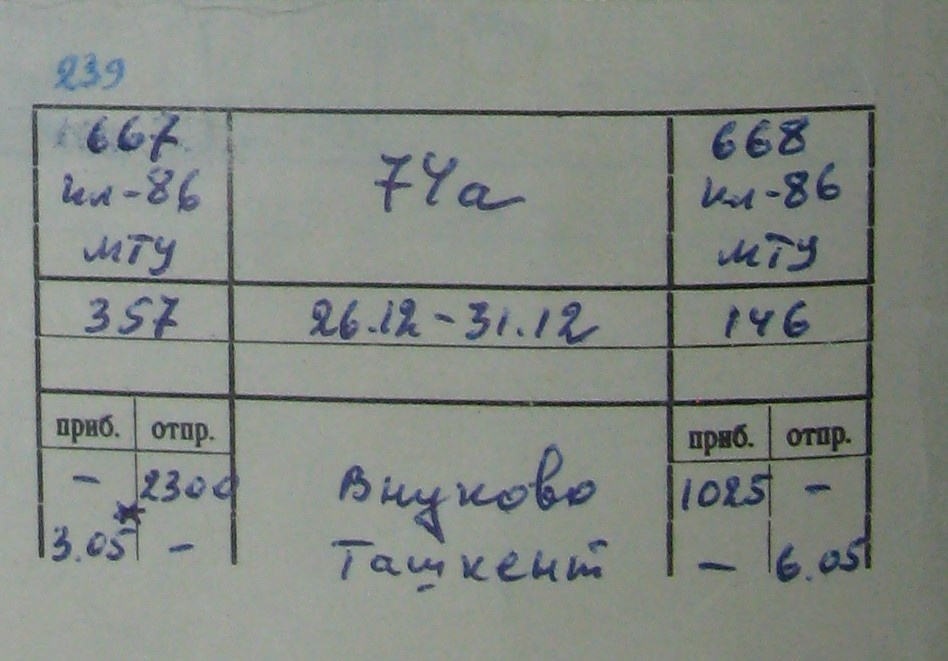 239
667 74а 668
ил-86 ил-86
МТУ МТУ
357 26.12-31.12 146
приб. отпр. приб. отпр.
- 2300 Внуково 1025 -
3.05 - Ташкент - 6.05